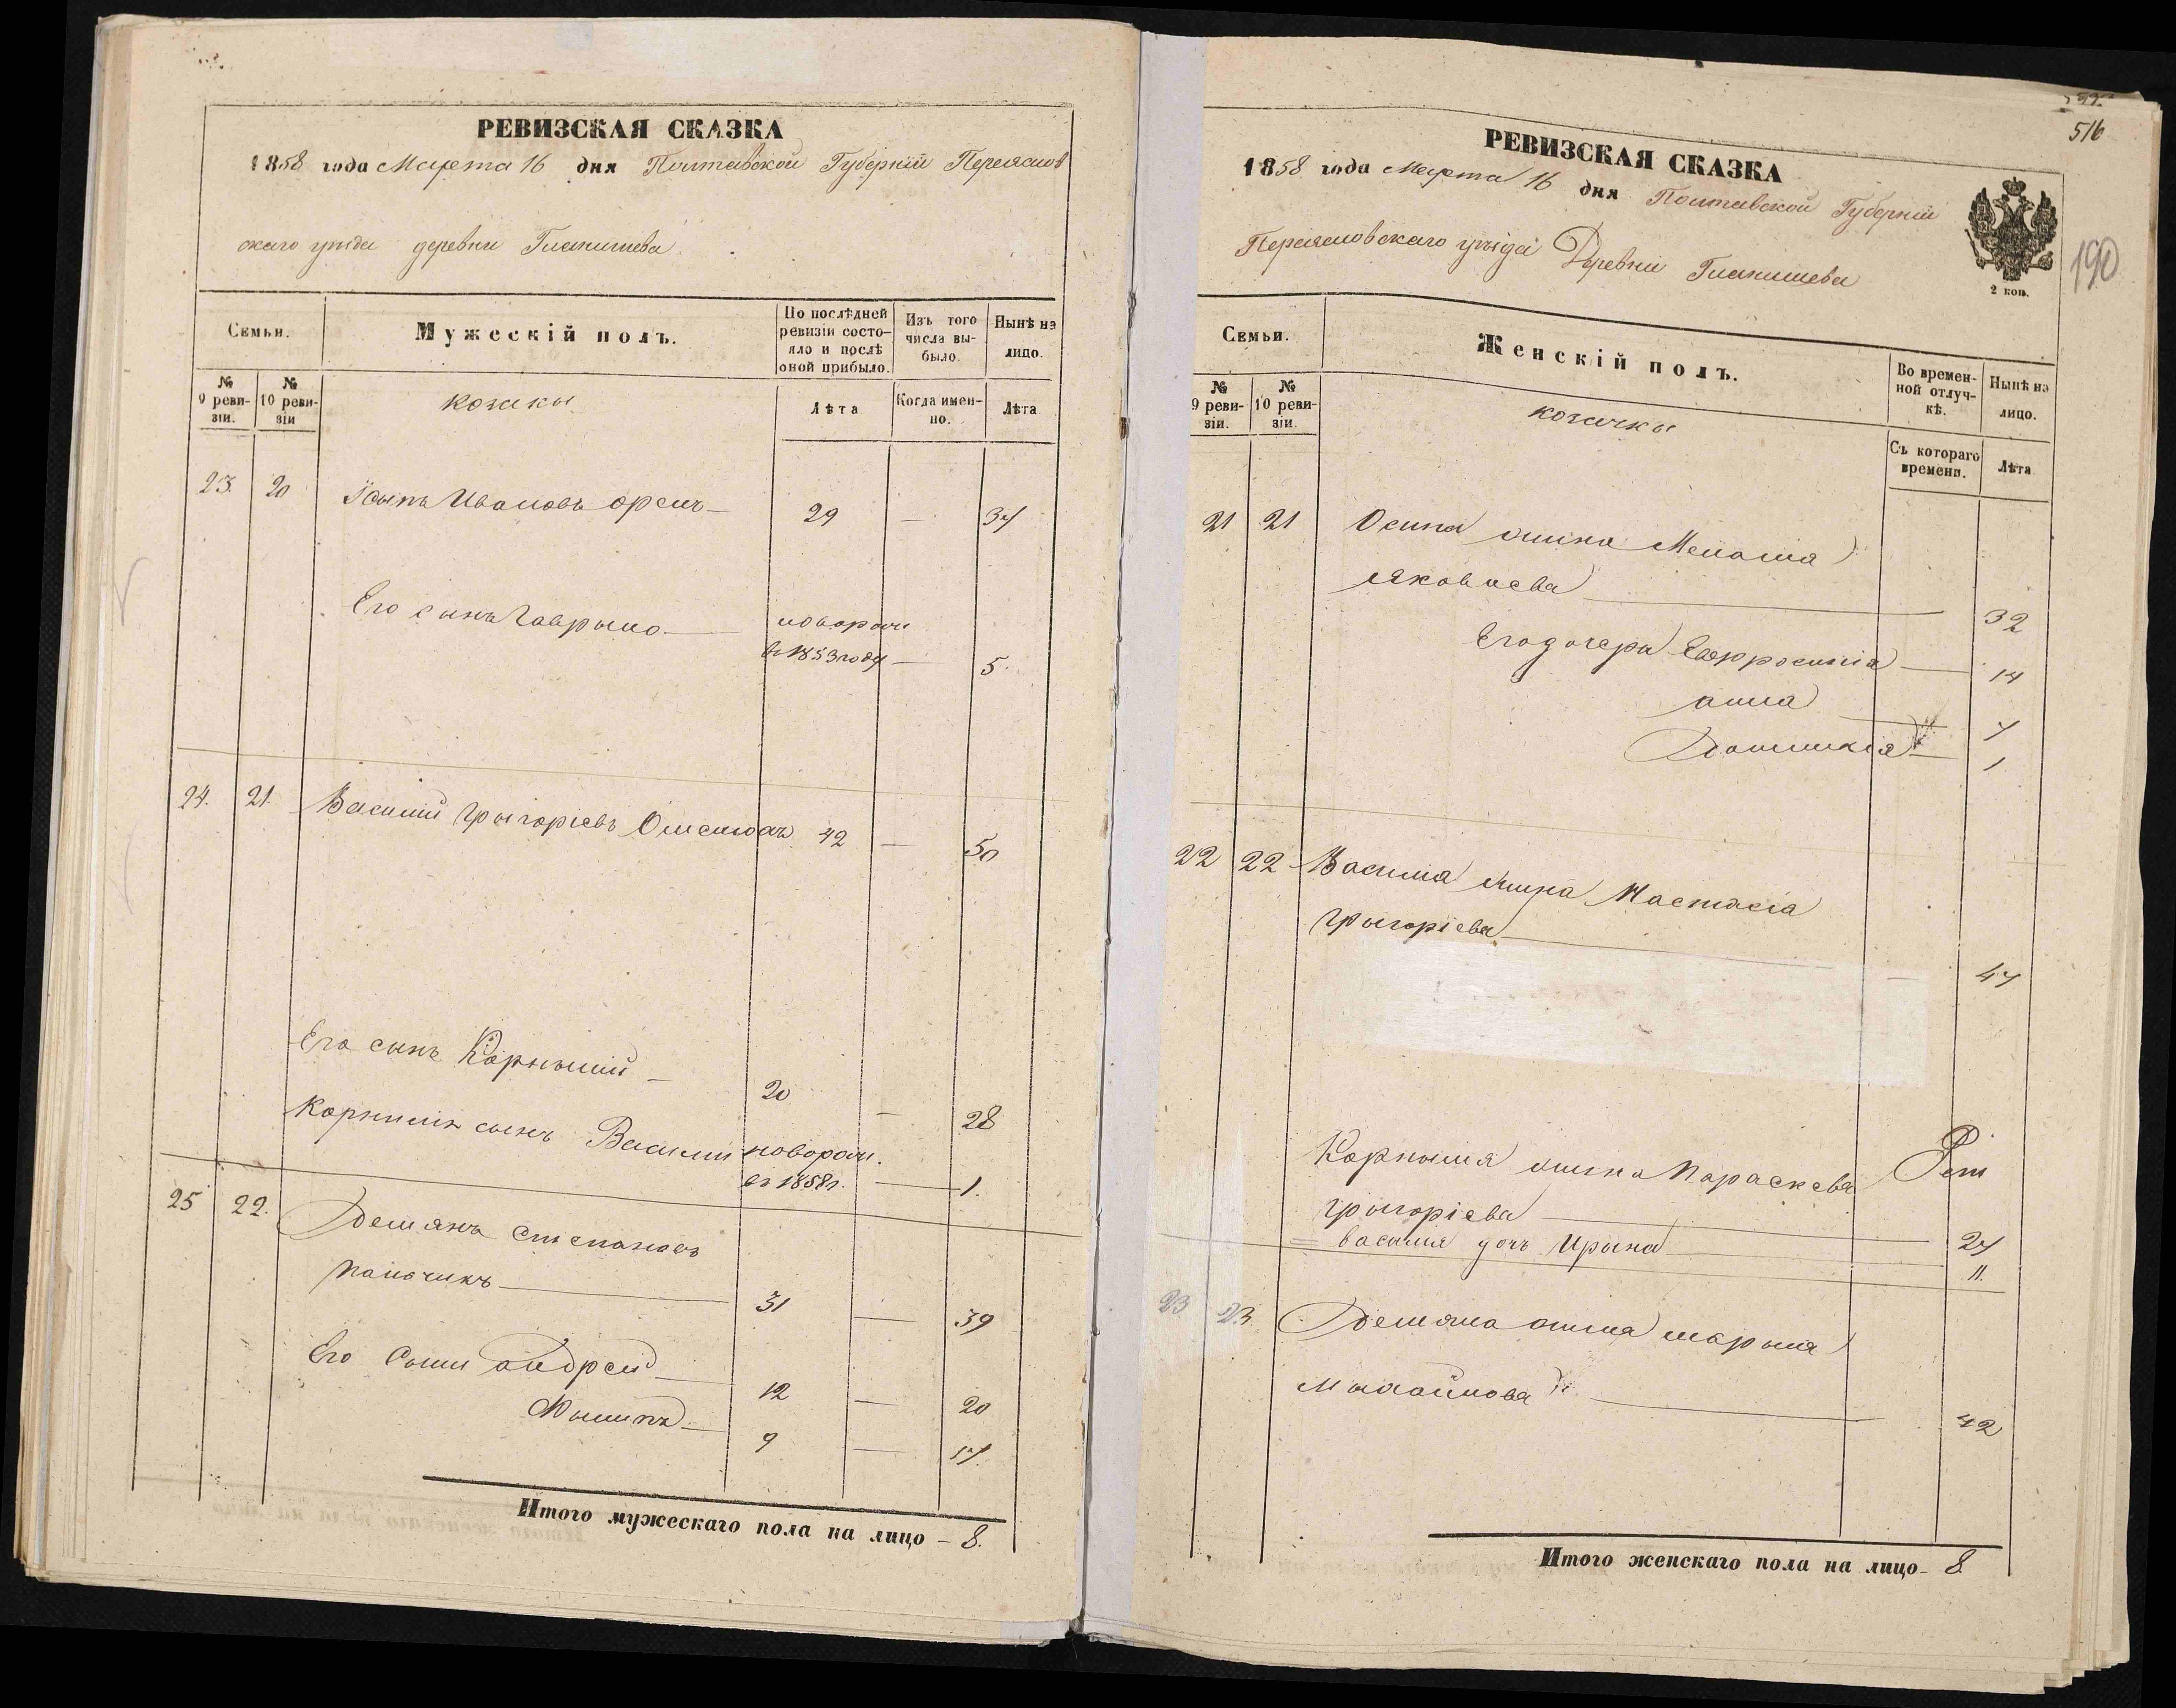 РЕВИЗСКАЯ СКАЗКА
1858 года Марта 16 дня Полтавской Губерніи Переяслов
скаго уѣзда деревни Гланишева
Семьи.
Мужескій полъ.
По послѣдней ревизіи состояло и послѣ оной прибыло.
Изъ того числа выбыло.
Нынѣ на лицо.
№ 9 ревизіи.
№ 10 ревизіи
козаки
Лѣта
Когда именно.
Лѣта
23. 20 Іосыпъ Ивановъ 29 — 37
Его сынъ Гаврыло новорож.
въ 1853 году — 5.
24. 21. Василій Грыгоріевъ 42 — 50
Его сынъ Корнылій — 20 — 28
Корнилія сынъ Василій новорож.
въ 1858 г. — 1.
25 22. Демянъ Степановъ
31 — 39
Его Сыны Андрей 12 — 20
9 — 17.
Итого мужескаго пола на лицо — 8.
516
190
РЕВИЗСКАЯ СКАЗКА
1858 года Марта 16 дня Полтавской Губерніи
Переясловскаго уѣзда Деревни Гланишева
2 коп.
Семьи.
Женскій полъ.
Во временной отлучкѣ.
Нынѣ на лицо.
№ 9 ревизіи.
№ 10 ревизіи.
козачки
Съ котораго времени.
Лѣта
21 21 Осипа жина Меланія
Яковлева — 32
Его дочери Евфросинія — 14
анна — 7
1
22 22 Василія жина Настасія
Грыгоріева — 47
Корнылія жина Параскева
Грыгоріева — 27
Василія дочь Ирына 11.
23 23. Демяна жина марыя
Мыхайлова — 42
Итого женскаго пола на лицо — 8